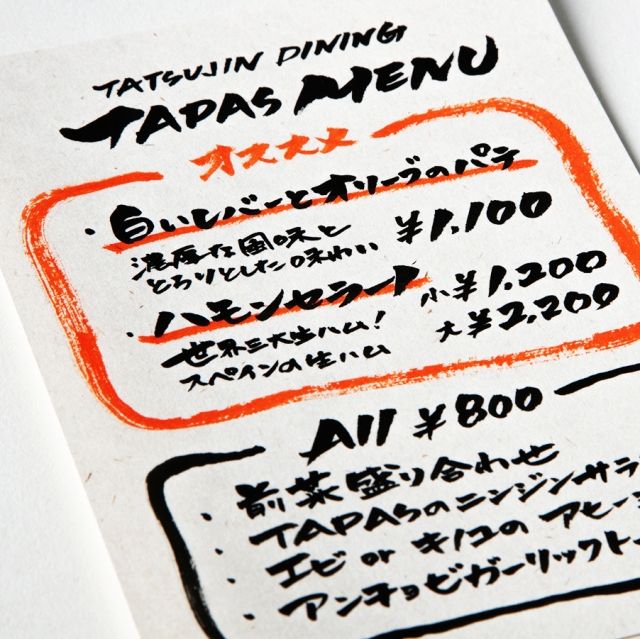 TATSUJIN DINING
TAPAS MENU
オススメ
・白いレバーとオリーブのパテ
濃厚な風味と
とろりとした味わい
¥1,100
・ハモンセラート
世界三大生ハム!
スペインの生ハム
小¥1,200
大¥2,200
All ¥800
・前菜盛り合わせ
・TAPASのニンジンサラ
・エビ or キノコの アヒー
・アンチョビガーリックト